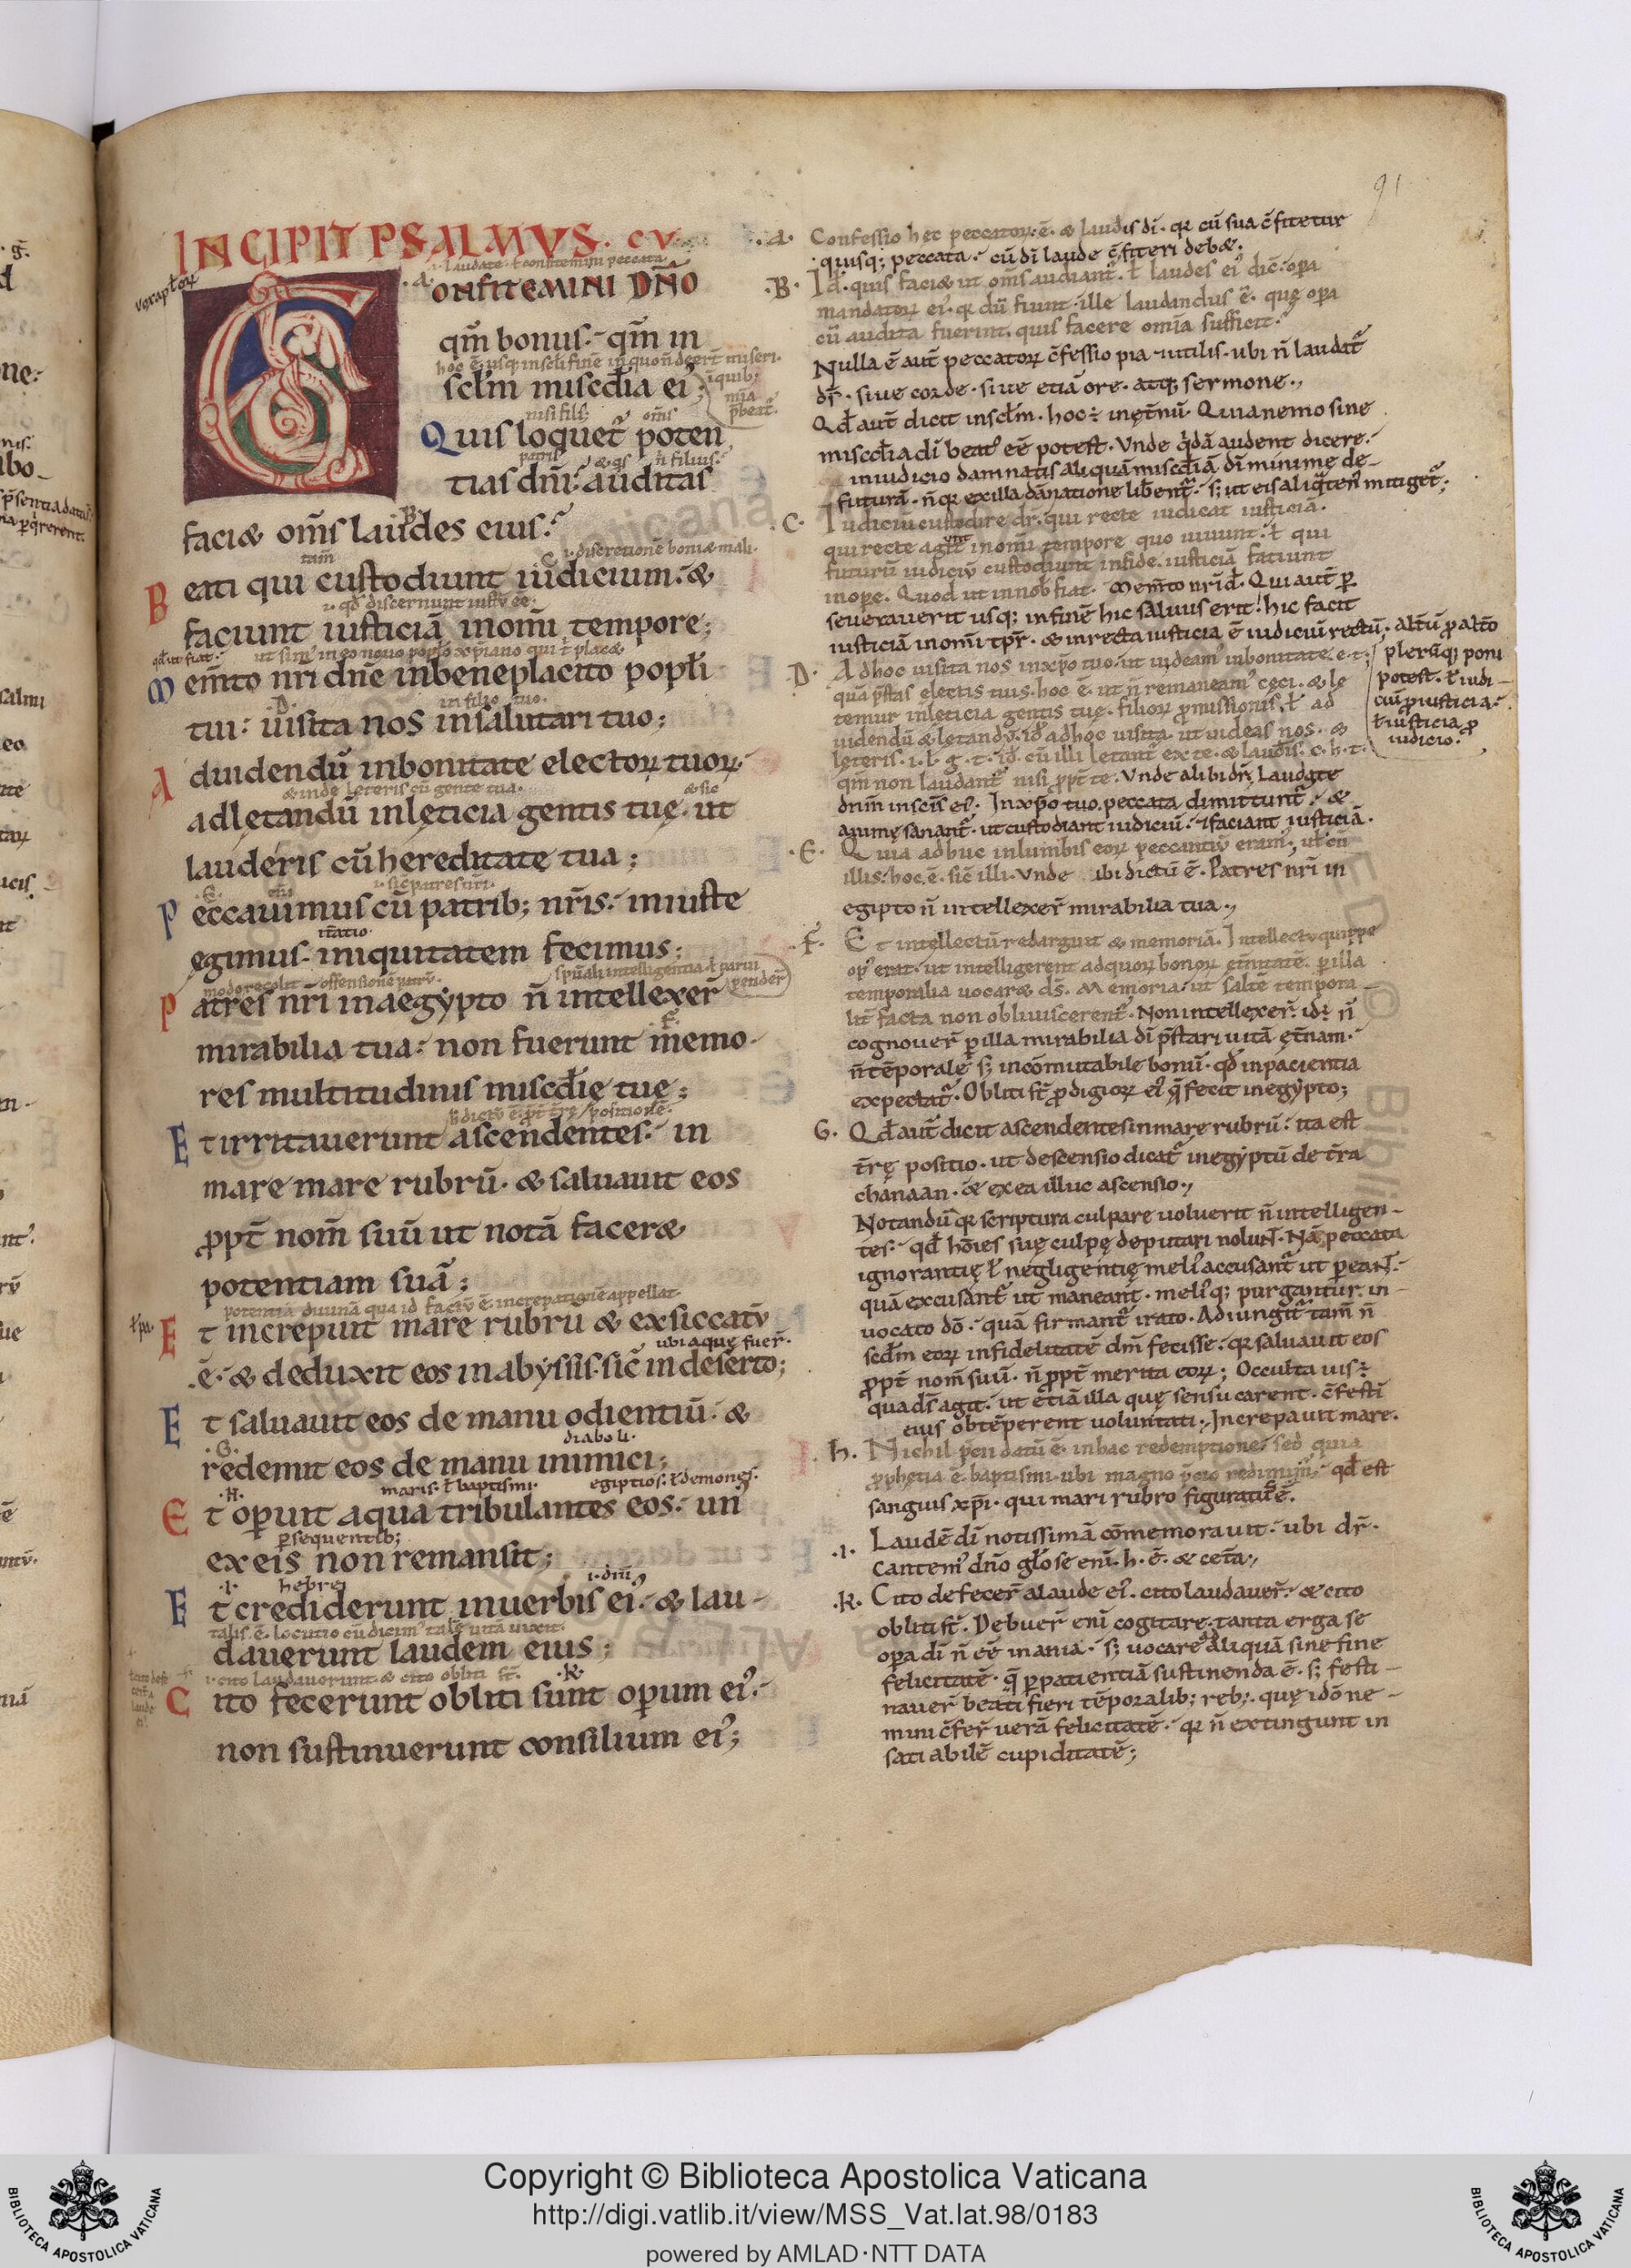 91
INCIPIT PSALMVS. CV
.i. laudate. ł confitemini peccata
.a. CONFITEMINI DÑO
qm̄ bonus. qm̄ in
hoc ē. usq; in scłi finē in quo n̄ deerit miseri.
scłm miscđia ei᾽;
in quib; mīa p̄beat̄.
nisi fili᾽. om̄s
Quis loquet̄ poten
patris. & q̄s n̄ filius.
tias dn̄i. auditas
.B.
faciæ om̄s laudes eius.
tam̄ C .i. discretionē boni & mali.
Beati qui custodiunt iudicium. &
.i. qđ discernunt iustū ēē.
faciunt iusticiā in om̄i tempore;
qđ ut fiat.
ut sim᾽ in eo nouo poplo xp̄iano qui t̄ placæ
Mem̄to nr̄i dn̄e in beneplacito popłi
.D. in filio tuo.
tui. uisita nos in salutari tuo;
Ad uidendū in bonitate electoꝝ tuoꝝ.
& inde lęteris cū gente tua. & sic
ad lętandū in lęticia gentis tuę. ut
lauderis cū hereditate tua;
.E. .i. sic̄ patres nr̄i.
Peccauimus cū patrib; nr̄is. iniuste
egimus. iniquitatem fecimus;
modo recolit offensionē patrū. spūali intelligentia
Patres nr̄i in aegypto n̄ intellexer̄
.F.
mirabilia tua. non fuerunt memo
res multitudinis miscđię tuę;
Et irritauerunt ascendentes. in
mare mare rubrū. & saluauit eos
ꝓpt̄ nom̄ suū ut notā faceræ
potentiam suā;
potentiā diuinā qua id factū ē increpationē appellat
Et increpuit mare rubrū & exsiccatū
ubi aquę fuer̄.
.ē. & deduxit eos in abyssis. sic̄ in deserto;
Et saluauit eos de manu odientiū. &
.G. diaboli.
redemit eos de manu inimici;
.H. maris. ł baptismi. egiptios. ł demones.
Et oꝑuit aqua tribulantes eos. un᾽
ꝑsequentib;
ex eis non remansit;
.I. hebrei .i. dn̄i
Et crediderunt in uerbis ei᾽. & lau
talis. ē. locutio cū dicim᾽ talē uitā uixit.
dauerunt laudem eius;
.i. cito laudauerunt & cito obliti st̄. .K.
Cito fecerunt obliti sunt oꝑum ei᾽.
non sustinuerunt consilium ei᾽;
.a. Confessio hec peccatoꝝ. ē. & laudis dī. qꝛ cū sua c̄fitetur
quisq; peccata. cū dī laude c̄fiteri debæ.
.B. Id. quis faciæ ut om̄s audiant̄. ł laudes ei᾽ dic̄. opa
mandatoꝝ ei᾽. qꝛ dū fiunt. ille laudandus ē. quę opa
cū audita fuerint. quis facere omīa sufficit.
Nulla ē aut̄ peccatoꝝ c̄fessio pia & utilis. ubi n̄ laudat̄
dr̄. siue corde. siue etiā ore. atq; sermone.,
Qđ aut̄ dicit in scłm. hoc ÷ in ęt̄nū. Quia nemo sine
miscđia dī beat᾽ ēē potest. Vnde q̇dā audent dicere.
in iudicio damnatis aliquā miscđiā dī minime de
futurā. n̄ qꝛ ex illa dānatione liber̄ent̄. s; ut eis aliq̄ten᾽ mitiget̄;
C. Iudiciū custodire dr̄. qui recte iudicat iusticiā.
qui recte agunt in om̄i tempore quo uiuunt. ł qui
futurū iudiciū custodiunt in fide. iusticiā faciunt
in opere. Quod ut in nob̄ fiat. Mem̄to nr̄i đ. Qui aut̄ ꝑ
seuerauerit usq; in finē hic saluus erit! hic facit
iusticiā in om̄i tp̄r. & in recta iusticia ē iudiciū rectū. alt̄ū ꝓ alt̄o
plerūq; poni
potest. ł iudi
ciū ꝓ iusticia.
ł iusticia ꝓ
iudicio.
.D. Ad hoc uisita nos in xp̄o tuo. ut uideam᾽ in bonitate. e. t.
quā p̄stas electis tuis. hoc ē. ut n̄ remaneam᾽ cęci. & lę
temur in lęticia gentis tuę. filioꝝ ꝓmissionis. ł ad
uidendū & lętandū. id᾽ ad hoc uisita. ut uideas nos. &
lęteris. i. l. g. t. id᾽. cū illi lętant̄ ex te. & lauđis. c. h. t.
qm̄ non laudant̄ nisi ꝓpt̄ te. Vnde alibi dr̄. Laudate
dnm̄ in scīs ei᾽. In xp̄o tuo peccata dimittunt̄. &
animę sanant̄. ut custodiant iudiciū. & faciant iusticiā.
.E. Quia adhuc in lumbis eoꝝ peccantiū eram᾽.
illis. hoc. ē. sic̄ illi. Vnde ibi dictū ē. Patres nr̄i in
egipto n̄ intellexer̄ mirabilia tua.,
.F. Et intellectū redarguit & memoriā. Intellectu quippe
op᾽ erat. ut intelligerent ad quoꝝ bonoꝝ ęt̄nitatē. ꝑ illa
temporalia uocaræ dś. Memoria. ut saltē tempora
lit̄ facta non obliuiscerent̄. Non intellexer̄. id ÷ n̄
cognouer̄ ꝑ illa mirabilia dī p̄stari uitā ęt̄nam.
n̄ tēporalē. s; incōmutabile bonū. qđ in pacientia
expectat̄. Obliti st̄ ꝓdigioꝝ ei᾽ q̄ fecit in egypto;
G. Qđ aut̄ dicit ascendentes in mare rubrū. ita est
t̄rę positio. ut descensio dicat̄ in egyptū de t̄ra
chanaan. & ex ea illuc ascensio.,
Notandū qꝛ scriptura culpare uoluerit n̄ intelligen
tes. qđ hōies suę culpę deputari nolunt. Nā peccata
ignorantię ł negligentię meli᾽ accusant̄ ut pereant.
quā excusant̄ ut maneant. meli᾽q; purgantur. in
uocato dō. quā firmant̄ irato. Adiungit̄ tam̄ n̄
scđm eoꝝ infidelitatē dm̄ fecisse. qꝛ saluauit eos
ꝓpt̄ nom̄ suū. n̄ ꝓpt̄ merita eoꝝ; Occulta uis ÷
qua dś agit. ut etiā illa quę sensu carent. c̄festī
eius obtēperent uoluntati., Increpauit mare.
h. Nichil p̄cii datū ē. in hac redemptione. sed quia
ꝓphetia ē baptismi. ubi magno p̄cio redimim᾽. qđ est
sanguis xp̄i. qui mari rubro figuratus ē.
.I. Laudē dī notissimā cōmemorauit. ubi dr̄.
Cantem᾽ dn̄o głose eni. h. ē. & cet̄a.,
.K. Cito defecer̄ a laude ei᾽. cito laudauer̄. & cito
obliti st̄. Debuer̄ eni cogitare. tanta erga se
opa dī n̄ ēē inania. s; uocare ad aliquā sine fine
felicitatē. q̄ ꝑ patientiā sustinenda ē. s; festi
nauer̄ beati fieri tēporalib; reb;. quę idō ne
mini c̄fer̄ uerā felicitatē. qꝛ n̄ extingunt in
satiabilē cupiditatē;
Copyright © Biblioteca Apostolica Vaticana
http://digi.vatlib.it/view/MSS_Vat.lat.98/0183
powered by AMLAD·NTT DATA
BIBLIOTECA APOSTOLICA VATICANA
BIBLIOTECA APOSTOLICA VATICANA